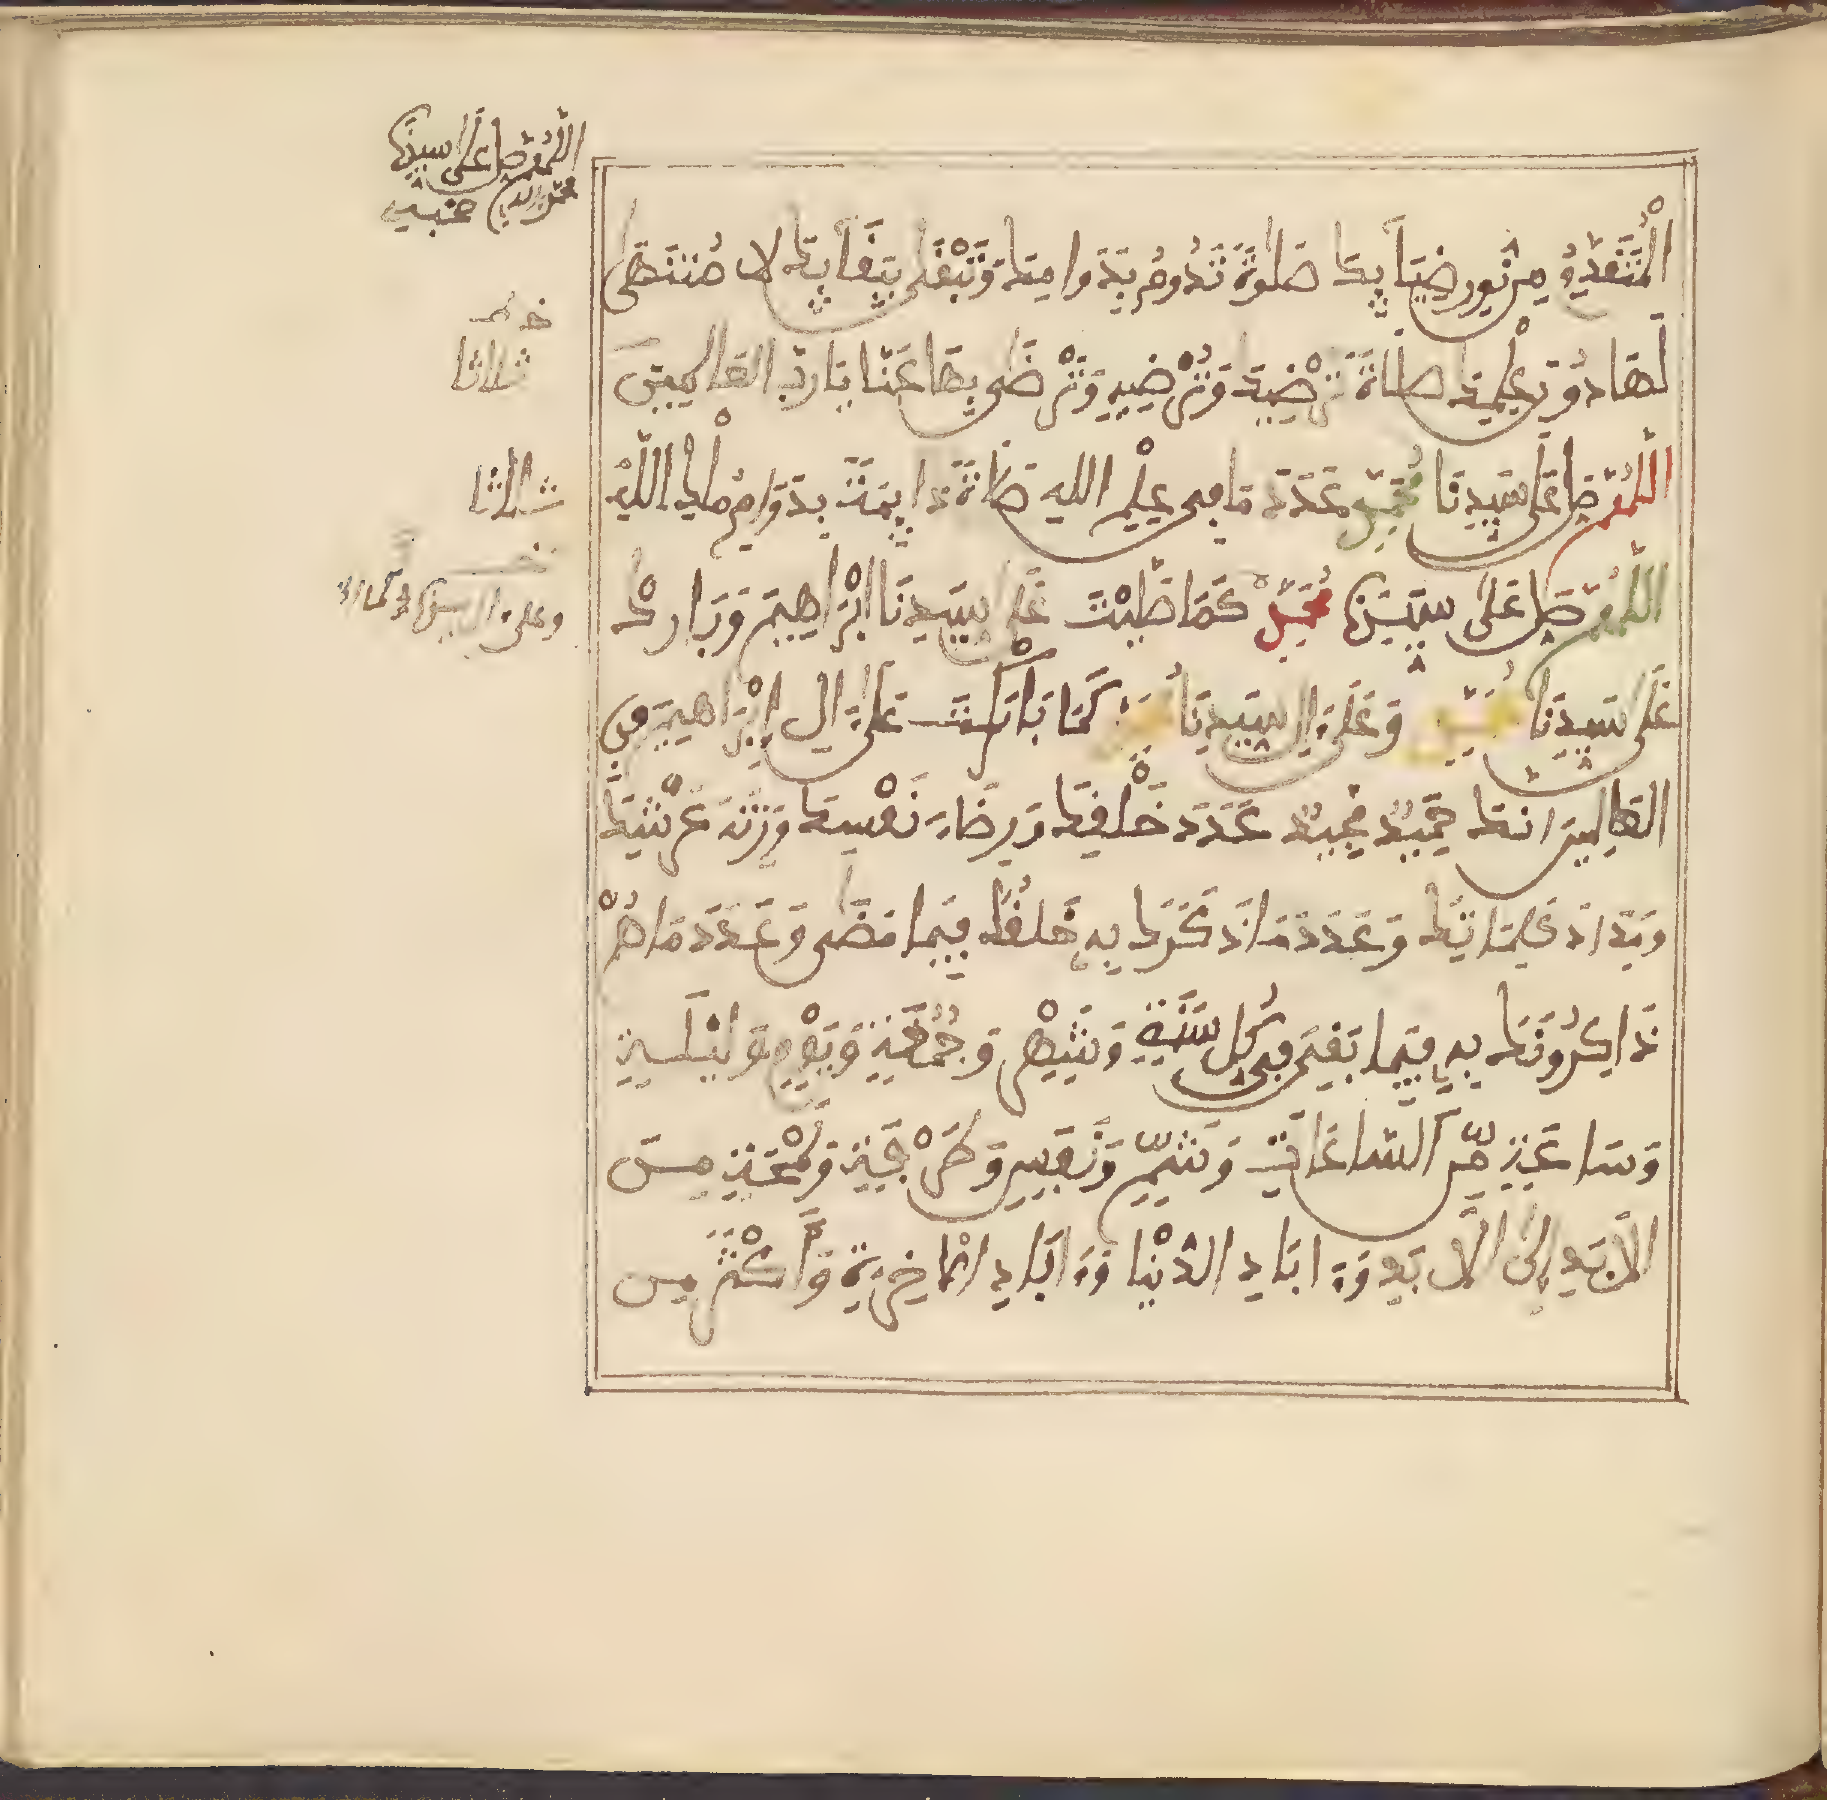 الْمُتَقَدِّمُ مِن نُورِ ضِيَائِكَ صَلَوٰةً تَدُومُ بِدَوَامِكَ وَتَبْقَىٰ بِبَقَائِكَ لَا مُنتَهَىٰ
لَهَا دُونَ عِلْمِكَ صَلَاةً تُرْضِيكَ وَتُرْضِيهِ وَتَرْضَىٰ بِهَا عَنَّا يَا رَبَّ الْعَالَمِينَ
اللَّهُمَّ صَلِّ عَلَىٰ سَيِّدِنَا مُحَمَّدٍ عَدَدَ مَا فِي عِلْمِ اللَّهِ صَلَاةً دَائِمَةً بِدَوَامِ مُلْكِ اللَّهِ
اللَّهُمَّ صَلِّ عَلَىٰ سَيِّدِنَا مُحَمَّدٍ كَمَا صَلَّيْتَ عَلَىٰ سَيِّدِنَا إِبْرَاهِيمَ وَبَارِكْ
عَلَىٰ سَيِّدِنَا مُحَمَّدٍ وَعَلَىٰ ءَالِ سَيِّدِنَا مُحَمَّدٍ كَمَا بَارَكْتَ عَلَىٰ ءَالِ إِبْرَاهِيمَ فِي
الْعَالَمِينَ إِنَّكَ حَمِيدٌ مَّجِيدٌ عَدَدَ خَلْقِكَ وَرِضَاءَ نَفْسِكَ وَزِنَةَ عَرْشِكَ
وَمِدَادَ كَلِمَاتِكَ وَعَدَدَ مَا ذَكَرَكَ بِهِ خَلْقُكَ فِيمَا مَضَىٰ وَعَدَدَ مَا هُمْ
ذَاكِرُونَكَ بِهِ فِيمَا بَقِيَ فِي كُلِّ سَنَةٍ وَشَهْرٍ وَجُمُعَةٍ وَيَوْمٍ وَلَيْلَةٍ
وَسَاعَةٍ مِّنَ السَّاعَاتِ وَشَمٍّ وَنَفَسٍ وَطَرْفَةٍ وَلَمْحَةٍ مِنَ
الْأَبَدِ إِلَى الْأَبَدِ وَءَابَادِ الدُّنْيَا وَءَابَادِ الْآخِرَةِ وَأَكْثَرَ مِن
اللهم صل على سيدنا
ثلاثا
ثلاثا